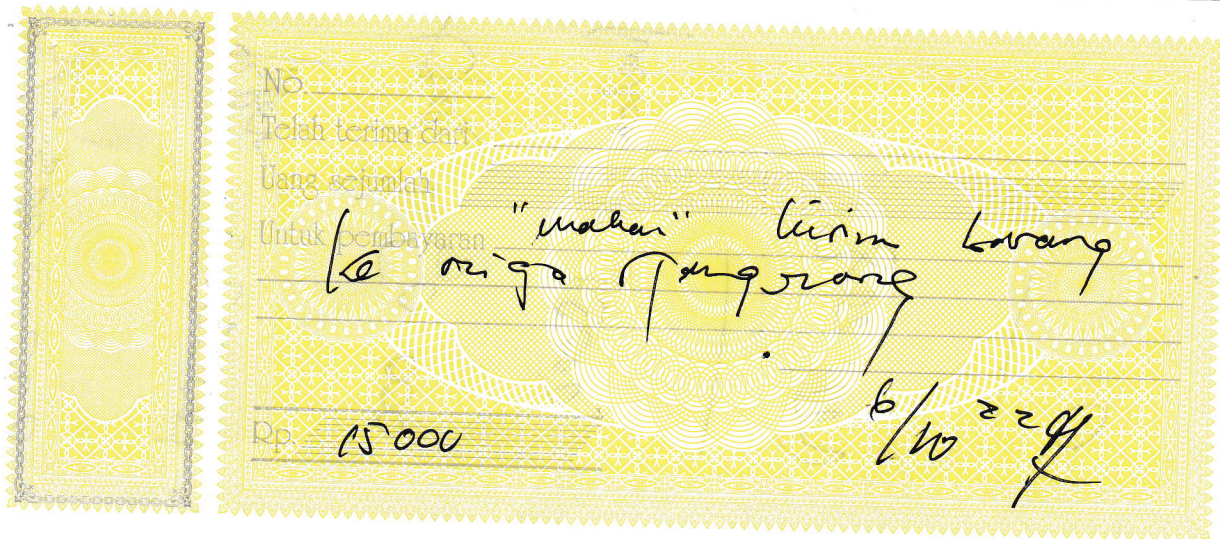 No.
Telah terima dari
Uang sejumlah
Untuk pembayaran "makan" kirim barang
ke Tangerang
Rp. 15000
6/10 22